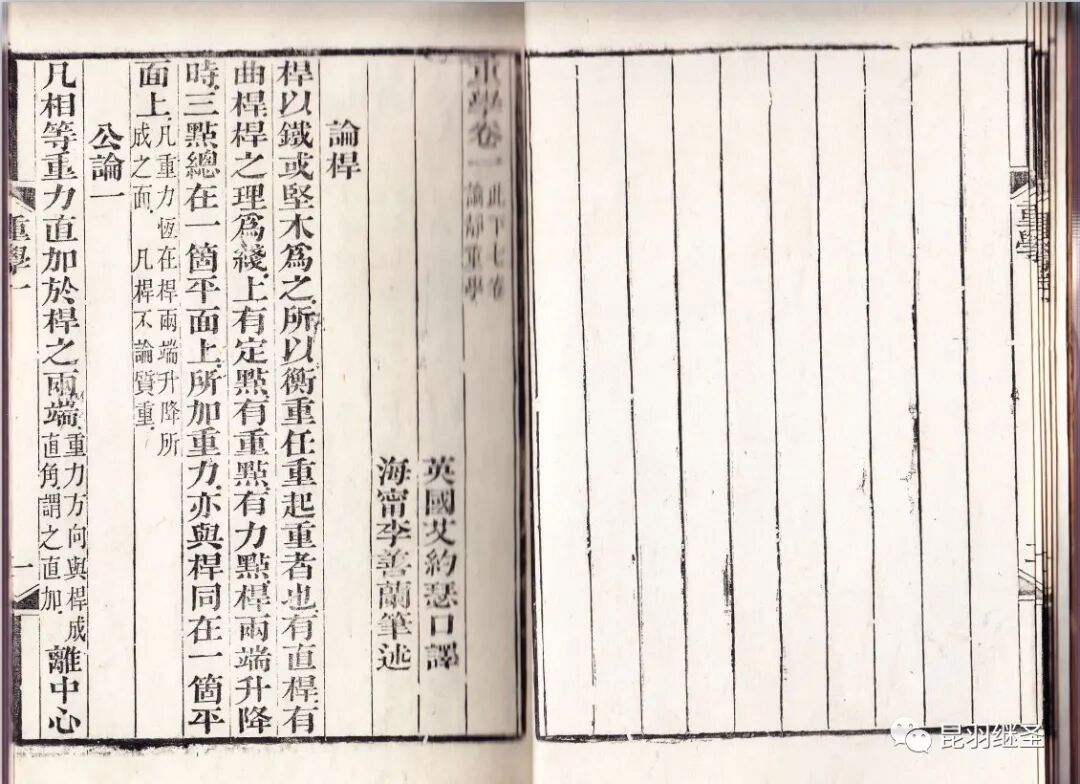 重學卷一 此下七卷
論靜重學
英國艾約瑟口譯
海甯李善蘭筆述
論桿
桿以鐵或堅木爲之所以衡重任重起重者也有直桿有
曲桿桿之理爲綫上有定點有重點有力點桿兩端升降
時三點總在一箇平面上所加重力亦與桿同在一箇平
面上凡重力恆在桿兩端升降所
成之面 凡桿不論質重
公論一
凡相等重力直加於桿之兩端重力方向與桿成
直角謂之直加離中心
重學一
一
重學
二
昆羽继圣